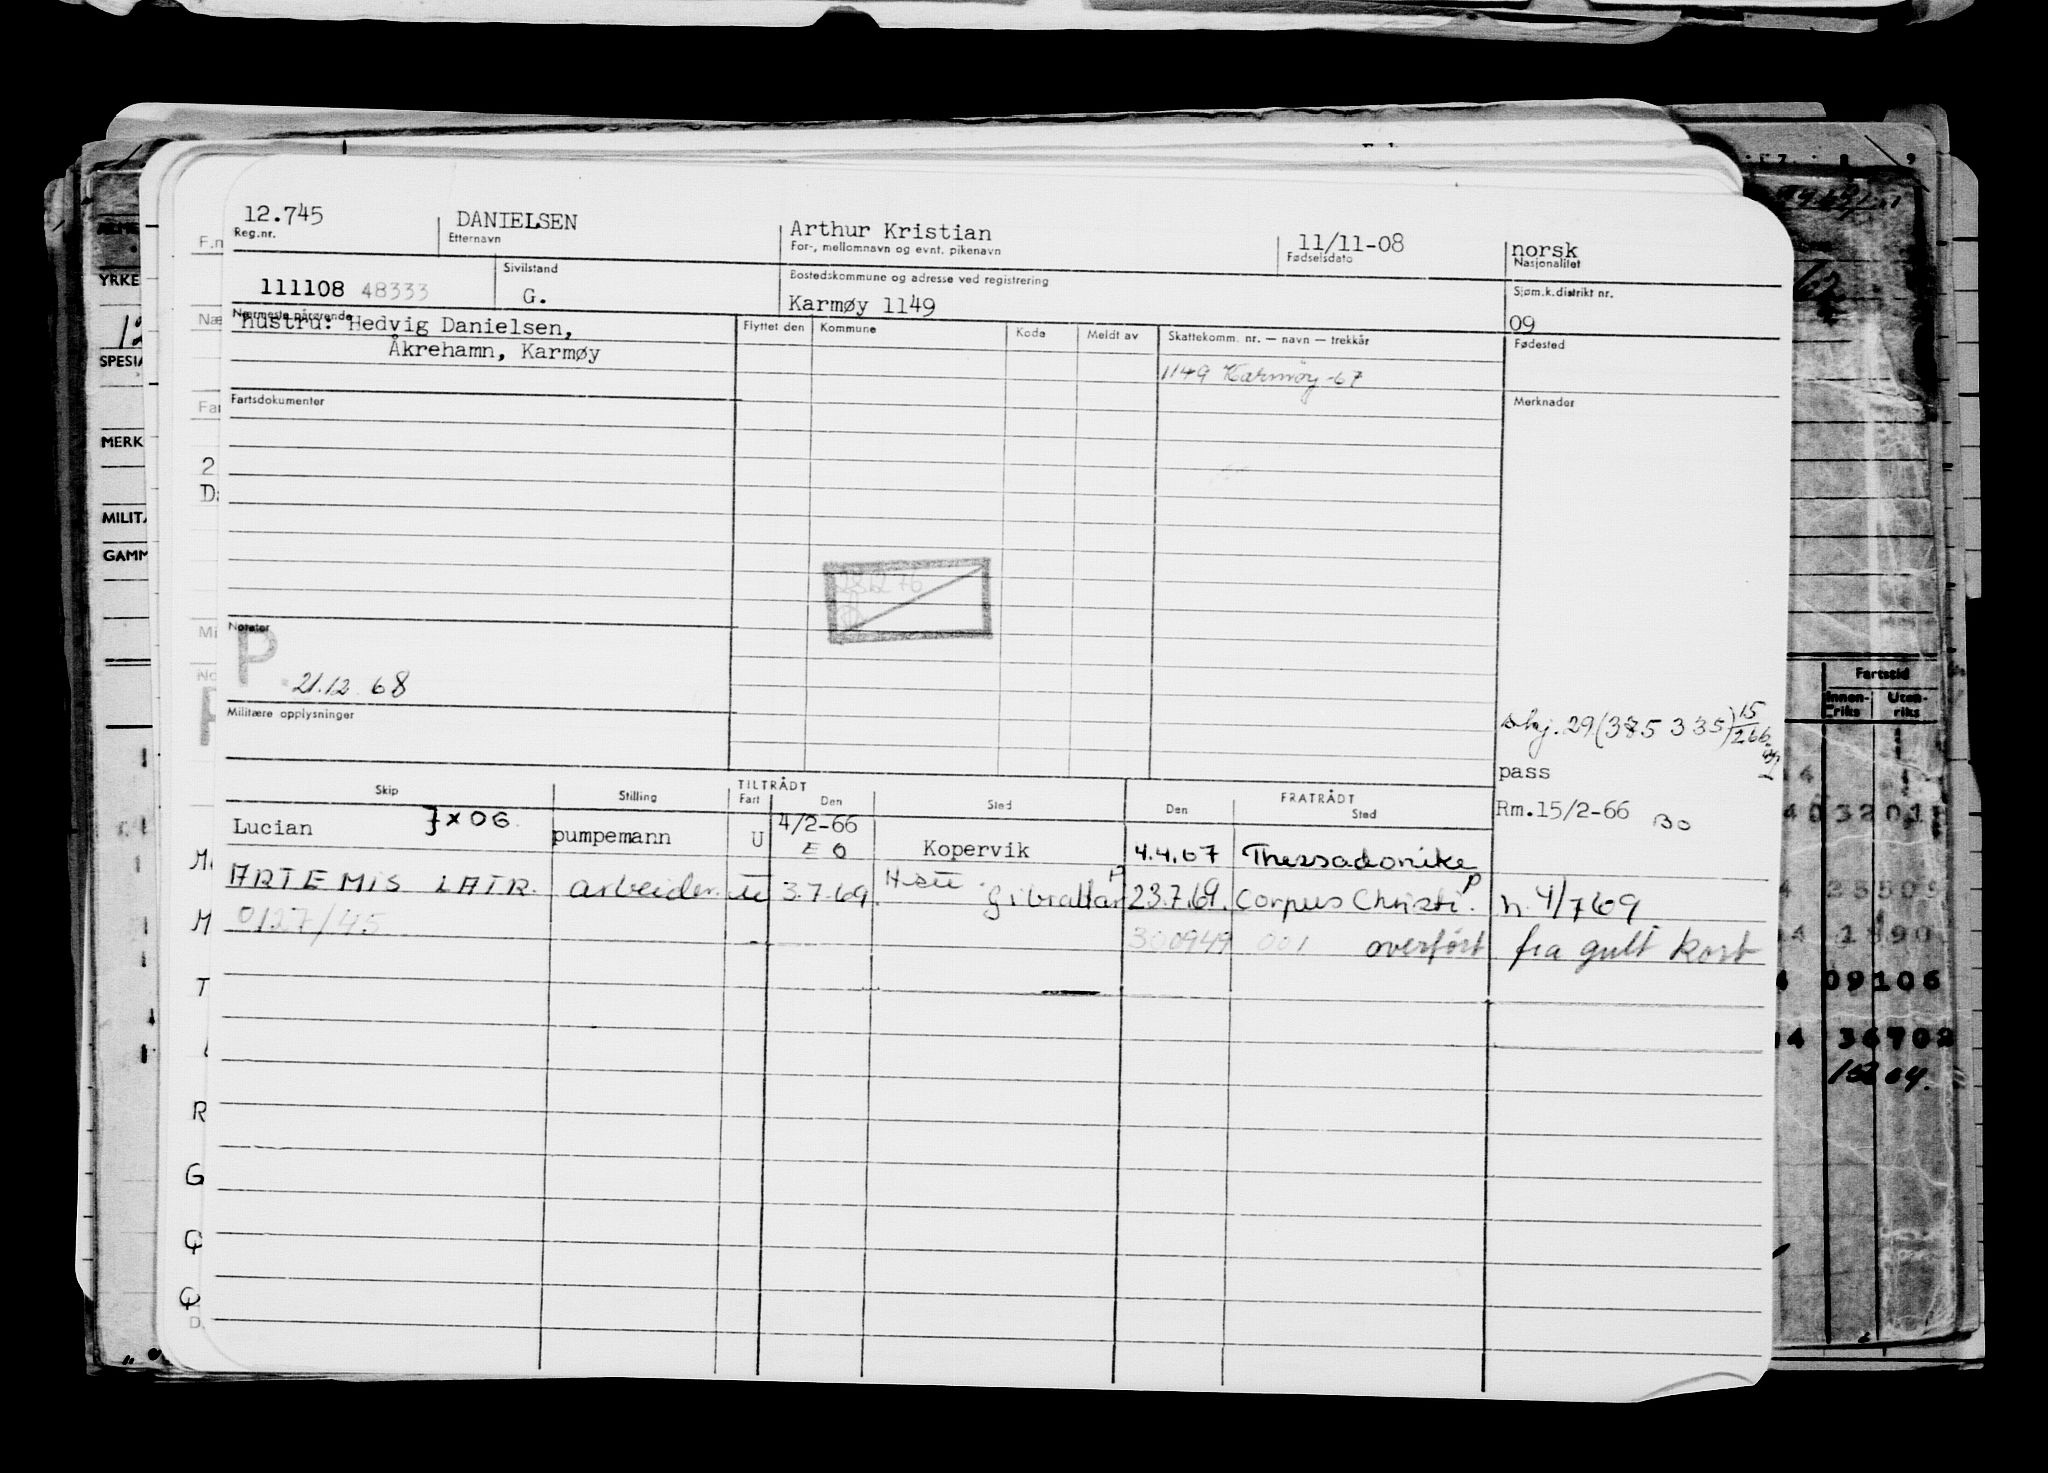 12.745 DANIELSEN Arthur Kristian 11/11-08 norsk
Reg.nr. Etternavn For-, mellomnavn og evnt. pikenavn Fødselsdato Nasjonalitet
111108 48333 Sivilstand Bostedskommune og adresse ved registrering Sjøm.k.distrikt nr.
G. Karmøy 1149 09
Nærmeste pårørende Flyttet den Kommune Kode Meldt av Skattekomm. nr. — navn — trekkår Fødested
hustru: Hedvig Danielsen,
Åkrehamn, Karmøy
1149 Karmøy-67
Fartsdokumenter Merknader
23.12.76
Notater
P
21.12.68
Militære opplysninger
29 (385 335) 15/2 66
pass
Skip Stilling TILTRÅDT FRATRÅDT
Fart Den Sted Den Sted
Rm.15/2-66 BO
Lucian JXOG pumpemann U 4/2-66 Kopervik 4.4.67 Thessadonike
E O
ARTEMIS LATR. arbeider U 3.7.69. Gibraltar P 23.7.69. Corpus Christi. P h. 4/769
0127/45 300949 001 overført fra gult kort
YRKE
SPESIA
MERK
MILITÆ
GAMM
Fartstid
Innen-riks Uten-riks
09106
36702